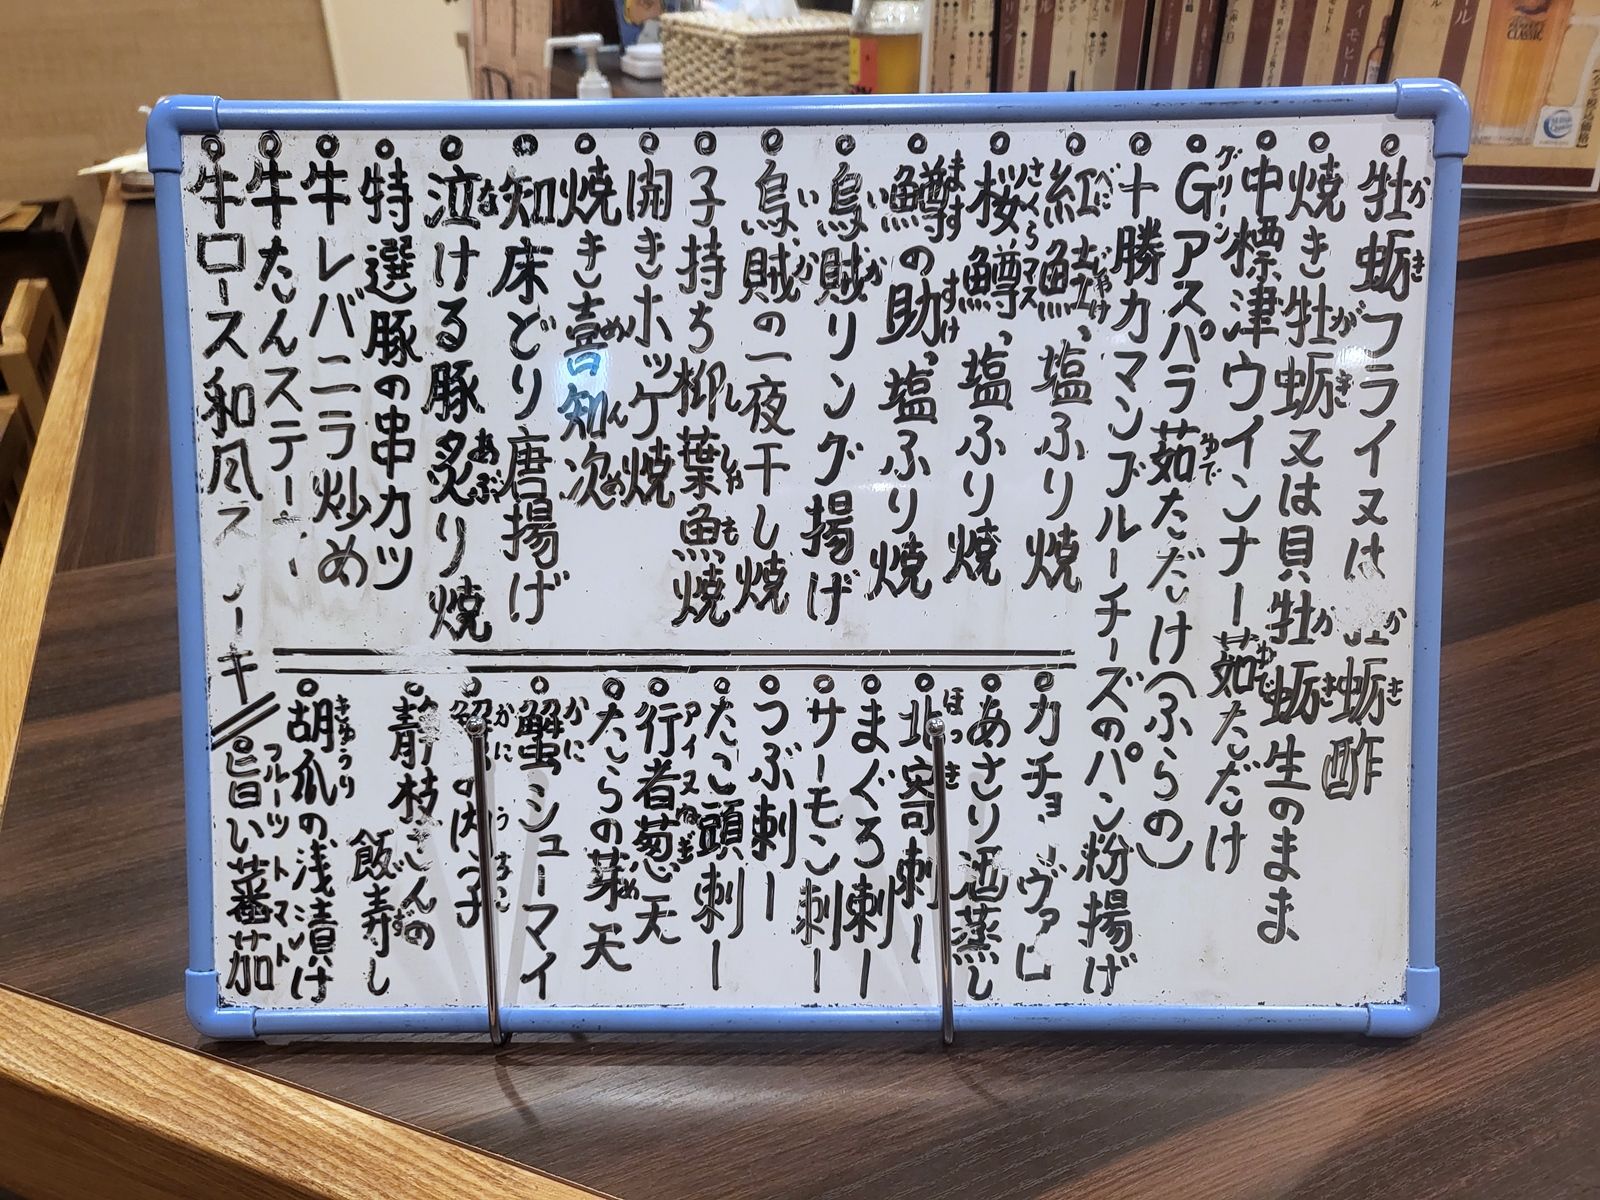 牡蛎フライ又は牡蛎酢
焼き牡蛎又は貝牡蛎生のまま
中標津ウインナー茹ただだけ
Gアスパラ茹ただだけ(ふらの)
十勝カマンブルーチーズのパン粉揚げ
紅鮭、塩ふり焼
桜鱒、塩ふり焼
鱒の助、塩ふり焼
烏賊リング揚げ
烏賊の一夜干し焼
子持ち柳葉魚焼
開きホッケ焼
焼き喜知次
知床どり唐揚げ
泣ける豚炙り焼
特選豚の串カツ
牛レバニラ炒め
牛たんステーキ
牛ロース和風ステーキ
カチョ
ヴァロ
あさり酒蒸し
北寄刺し
まぐろ刺し
サーモン刺し
つぶ刺し
たこ頭刺し
行者葱天
たらの芽天
蟹シューマイ
蟹の内子
青前枝さんの
飯寿し
胡瓜の浅漬け
旨い蕃茄